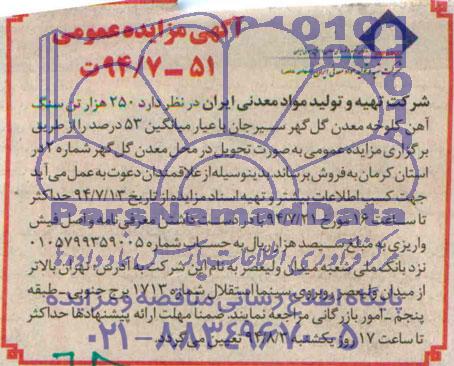 آگهی مزایده عمومی
۵۱ ــ ۹۴/۷ت
شرکت تهیه و تولید مواد معدنی ایران در نظر دارد ۲۵۰ هزار تن سنگ
آهن کلوخه معدن گل گهر سیرجان با عیار میانگین ۵۳ درصد را از طریق
برگزاری مزایده عمومی به صورت تحویل در محل معدن گل گهر شماره ۲ در
استان کرمان به فروش برساند. بدینوسیله از علاقمندان دعوت به عمل می آید
جهت کسب اطلاعات بیشتر و تهیه اسناد مزایده از تاریخ ۹۴/۷/۱۳ حداکثر
تا ساعت ۱۶ مورخ ۹۴/۷/۲۱ با در دست داشتن معرفی نامه و اصل فیش
واریزی به مبلغ سیصد هزار ریال به حساب شماره ۰۱۰۵۷۹۹۳۵۹۰۰۵
نزد بانک ملی شعبه میدان ولیعصر به نام این شرکت به آدرس تهران بالاتر
از میدان ولیعصر روبروی سینما استقلال شماره ۱۷۱۳ برج جنوبی ـ طبقه
پنجم ـ امور بازرگانی مراجعه نمایند. ضمنا مهلت ارائه پیشنهادها حداکثر
تا ساعت ۱۷ روز یکشنبه ۹۴/۸/۳ تعیین می گردد.
ParsNamadData
پایگاه اطلاع رسانی مناقصه و مزایده
۰۲۱-۸۸۳۴۹۶۷۰-۵